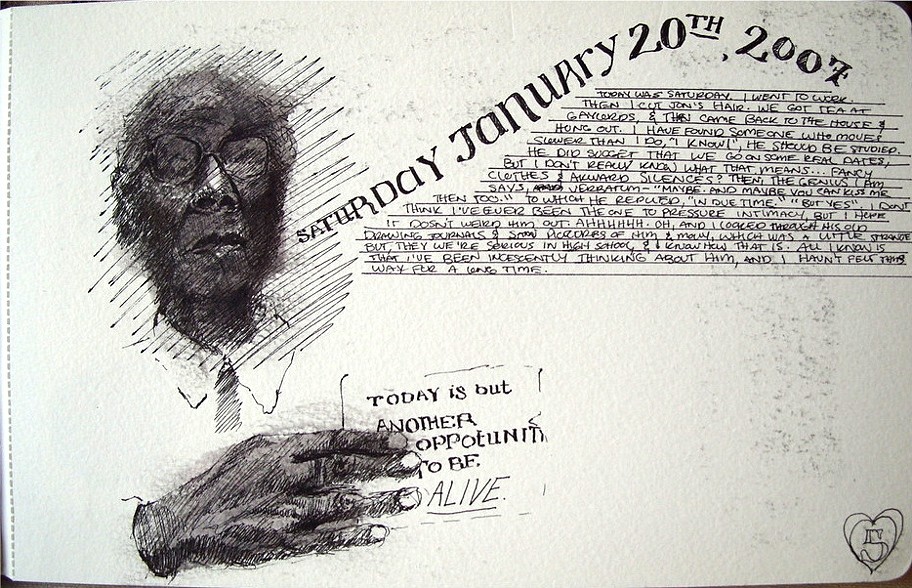 SATURDAY JANUARY 20TH, 2007
TODAY WAS SATURDAY. I WENT TO WORK.
THEN I CUT JON'S HAIR. WE GOT TEA AT
GAYLORDS, & THEN CAME BACK TO THE HOUSE &
HUNG OUT. I HAVE FOUND SOMEONE WHO MOVES
SLOWER THAN I DO, "I KNOW!", HE SHOULD BE STUDIED.
HE DID SUGGEST THAT WE GO ON SOME REAL DATES,
BUT I DON'T REALLY KNOW WHAT THAT MEANS... FANCY
CLOTHES & AKWARD SILENCES? THEN THE GENIUS I AM
SAYS, VERBATUM - "MAYBE. AND MAYBE YOU CAN KISS ME
THEN TOO." TO WHICH HE REPLIED, "IN DUE TIME." "BUT YES". I DONT
THINK I'VE EVER BEEN THE ONE TO PRESSURE INTIMACY, BUT I HOPE
IT DOSN'T WEIRD HIM OUT. AHHHHHH. OH, AND I LOOKED THROUGH HIS OLD
DRAWING JOURNALS & SAW PICTURES OF HIM & MOLLY, WHICH WAS A LITTLE STRANGE
BUT, THEY WE'RE SERIOUS IN HIGH SCHOOL, & I KNOW HOW THAT IS. ALL I KNOW IS
THAT I'VE BEEN INCESCENTLY THINKING ABOUT HIM, AND I HAVN'T FELT THIS
WAY FOR A LONG TIME.
TODAY IS but
ANOTHER
OPPOTUNIT
TO BE
ALIVE.
5